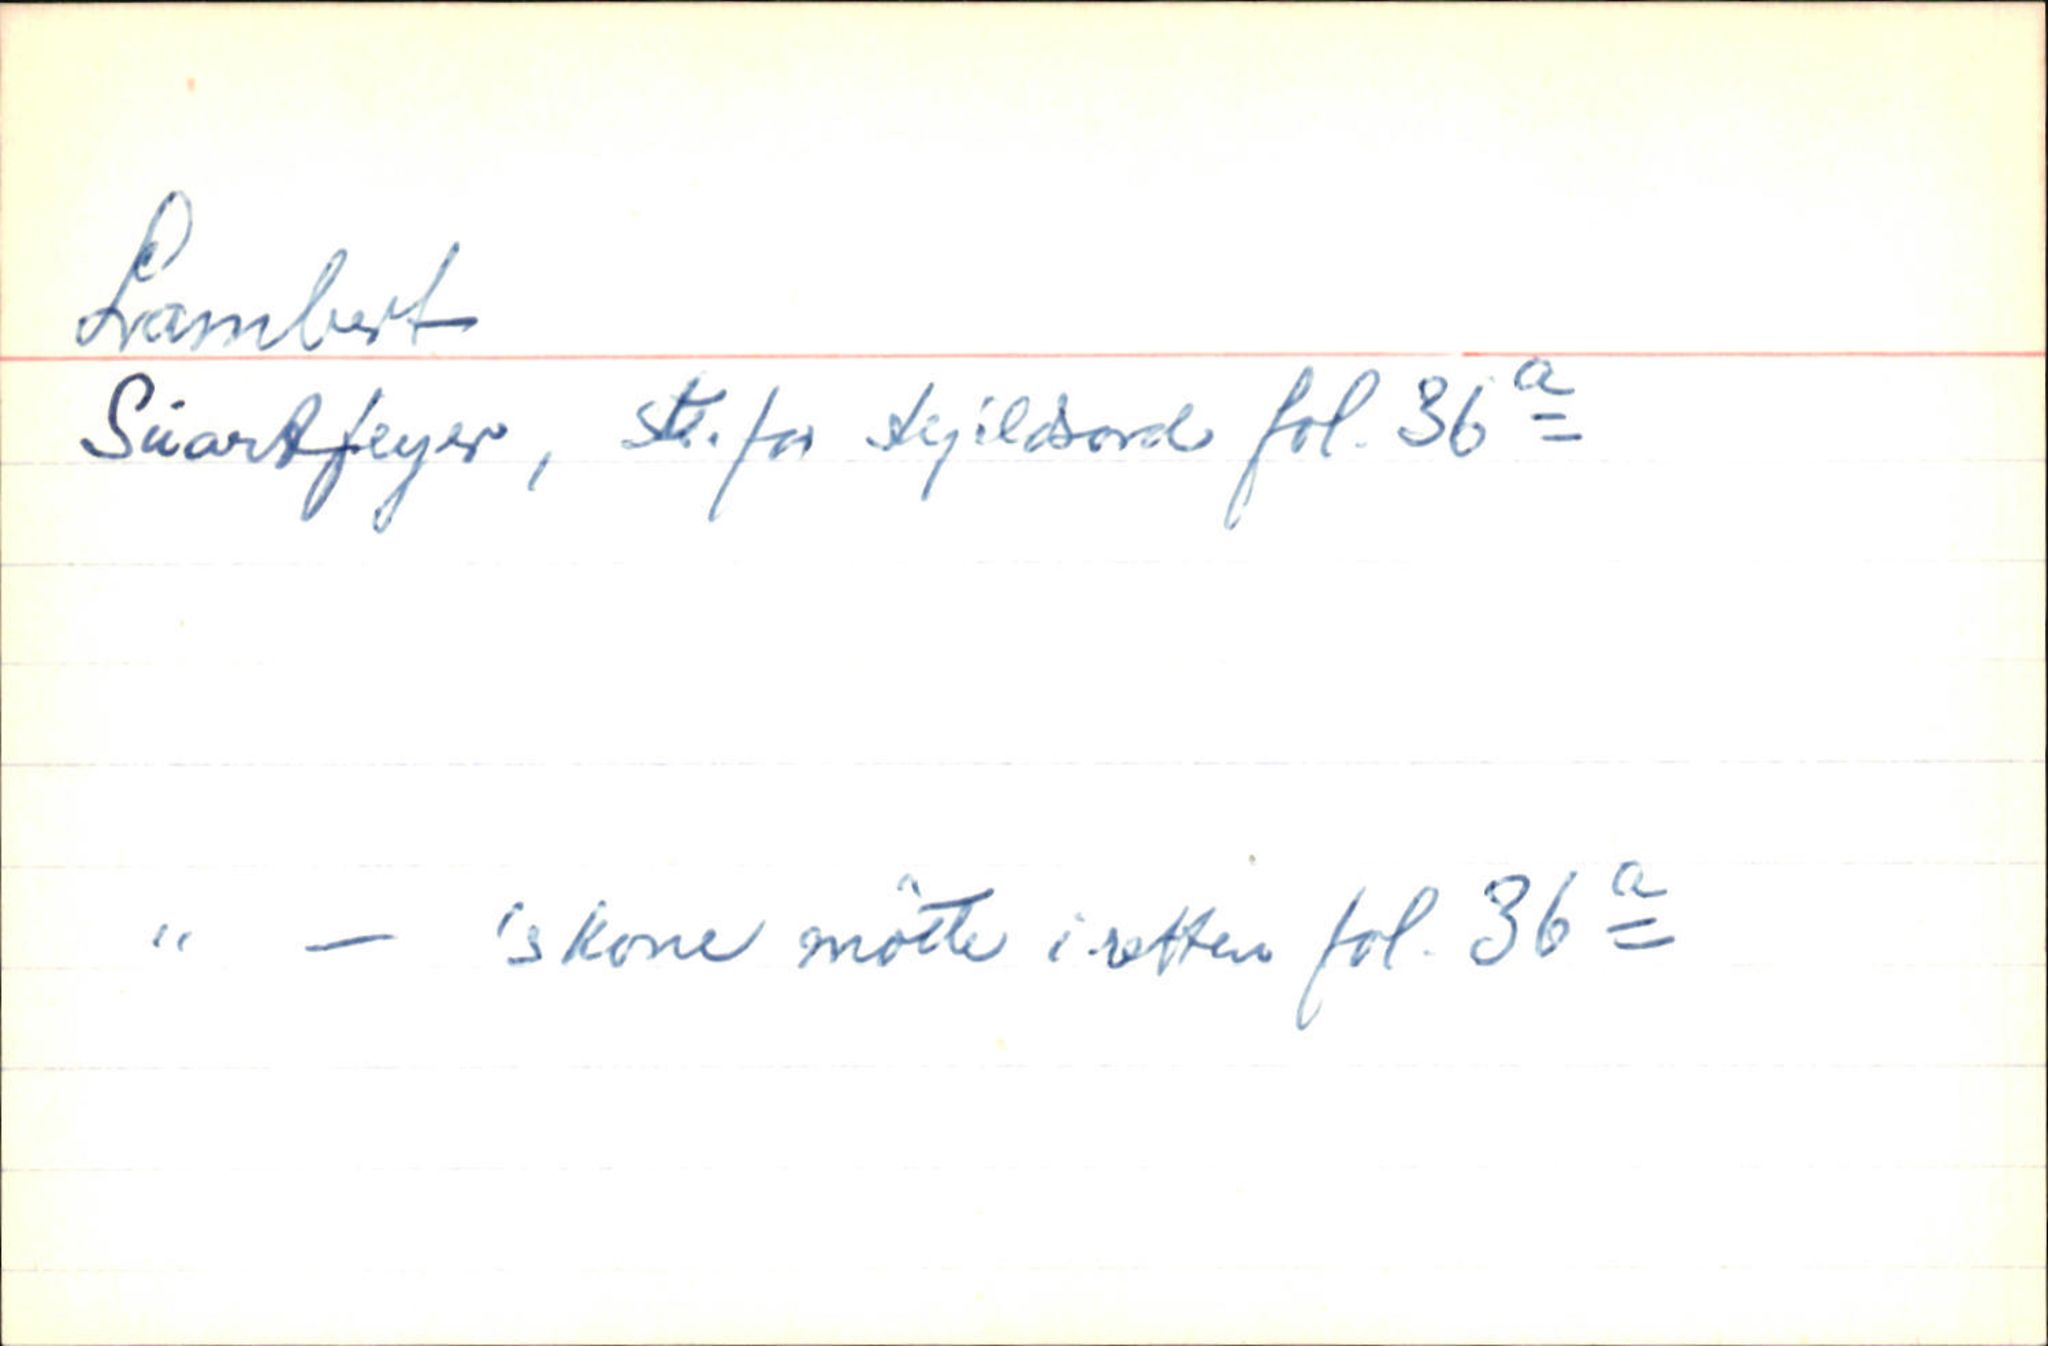 Lambert
Suartfeyer, st. for skjeldsord fol. 36 a
" — 's kone mötte i retten fol. 36 a